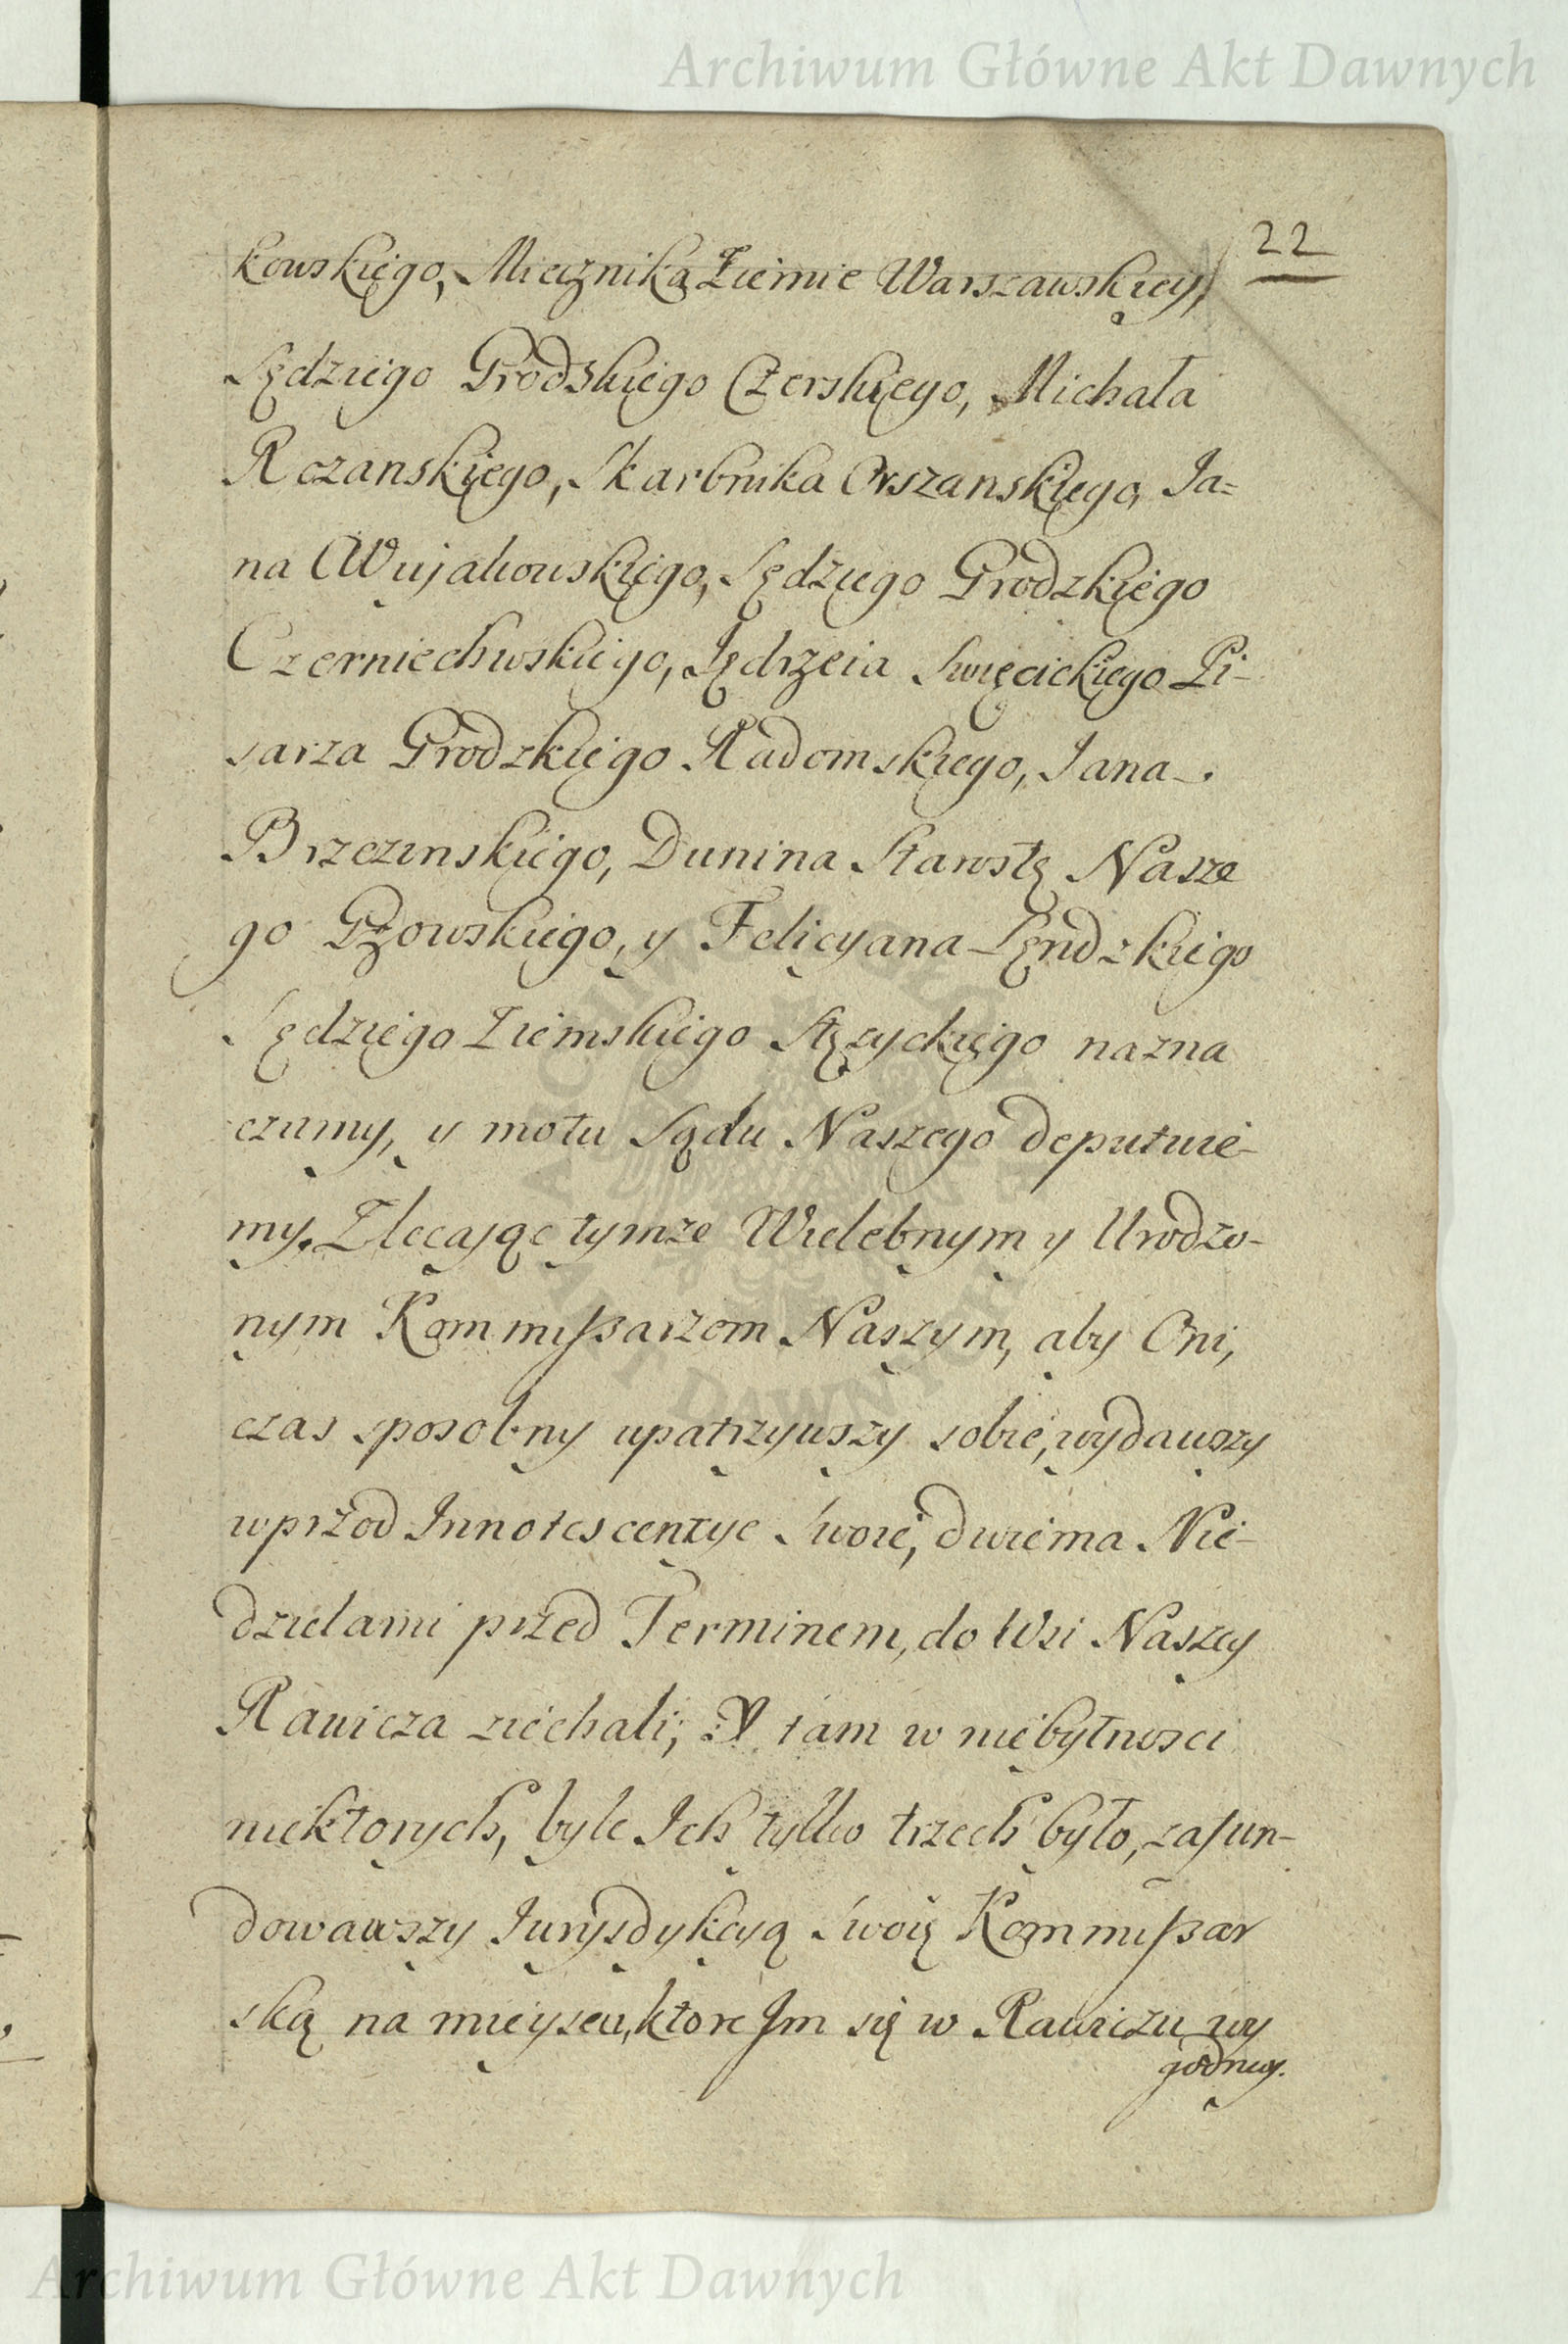 Archiwum Główne Akt Dawnych
22
kowskiego, Miecznika Ziemie Warszawskiey,
Sędziego Grodskiego Czerskiego, Michała
Rczanskiego, Skarbnika Orszanskiego, Ja=
na Wujakowskiego, Sędziego Grodzkiego
Czerniechwskiego, Jędrzeia Swięcickiego Pi-
sarza Grodzkiego Radomskiego, Jana
Brzezinskiego, Dunina Starostę Nasze
go Gżowskiego, y Felicyana Lendzkiego
Sędziego Ziemskiego Stężyckiego nazna
czamy, y motu Sądu Naszego deputuie-
my. Zlecaiąc tymze Wielebnym y Urodzo-
nym Kommißarzom Naszym, aby Oni,
czas sposobny upatrzywszy sobie, wydawszy
wprzod Innotescencye Swoie, dwiema Nie-
dzielami przed Terminem, do Wsi Naszey
Rawicza ziechali; Y tam w niebytnosci
niektorych, byle Ich tylko trzech było, zafun-
dowawszy Jurysdykcyą Swoię Kommißar
ską na mieyscu, ktore Jm się w Rawiczu wy
godniey.
Archiwum Główne Akt Dawnych